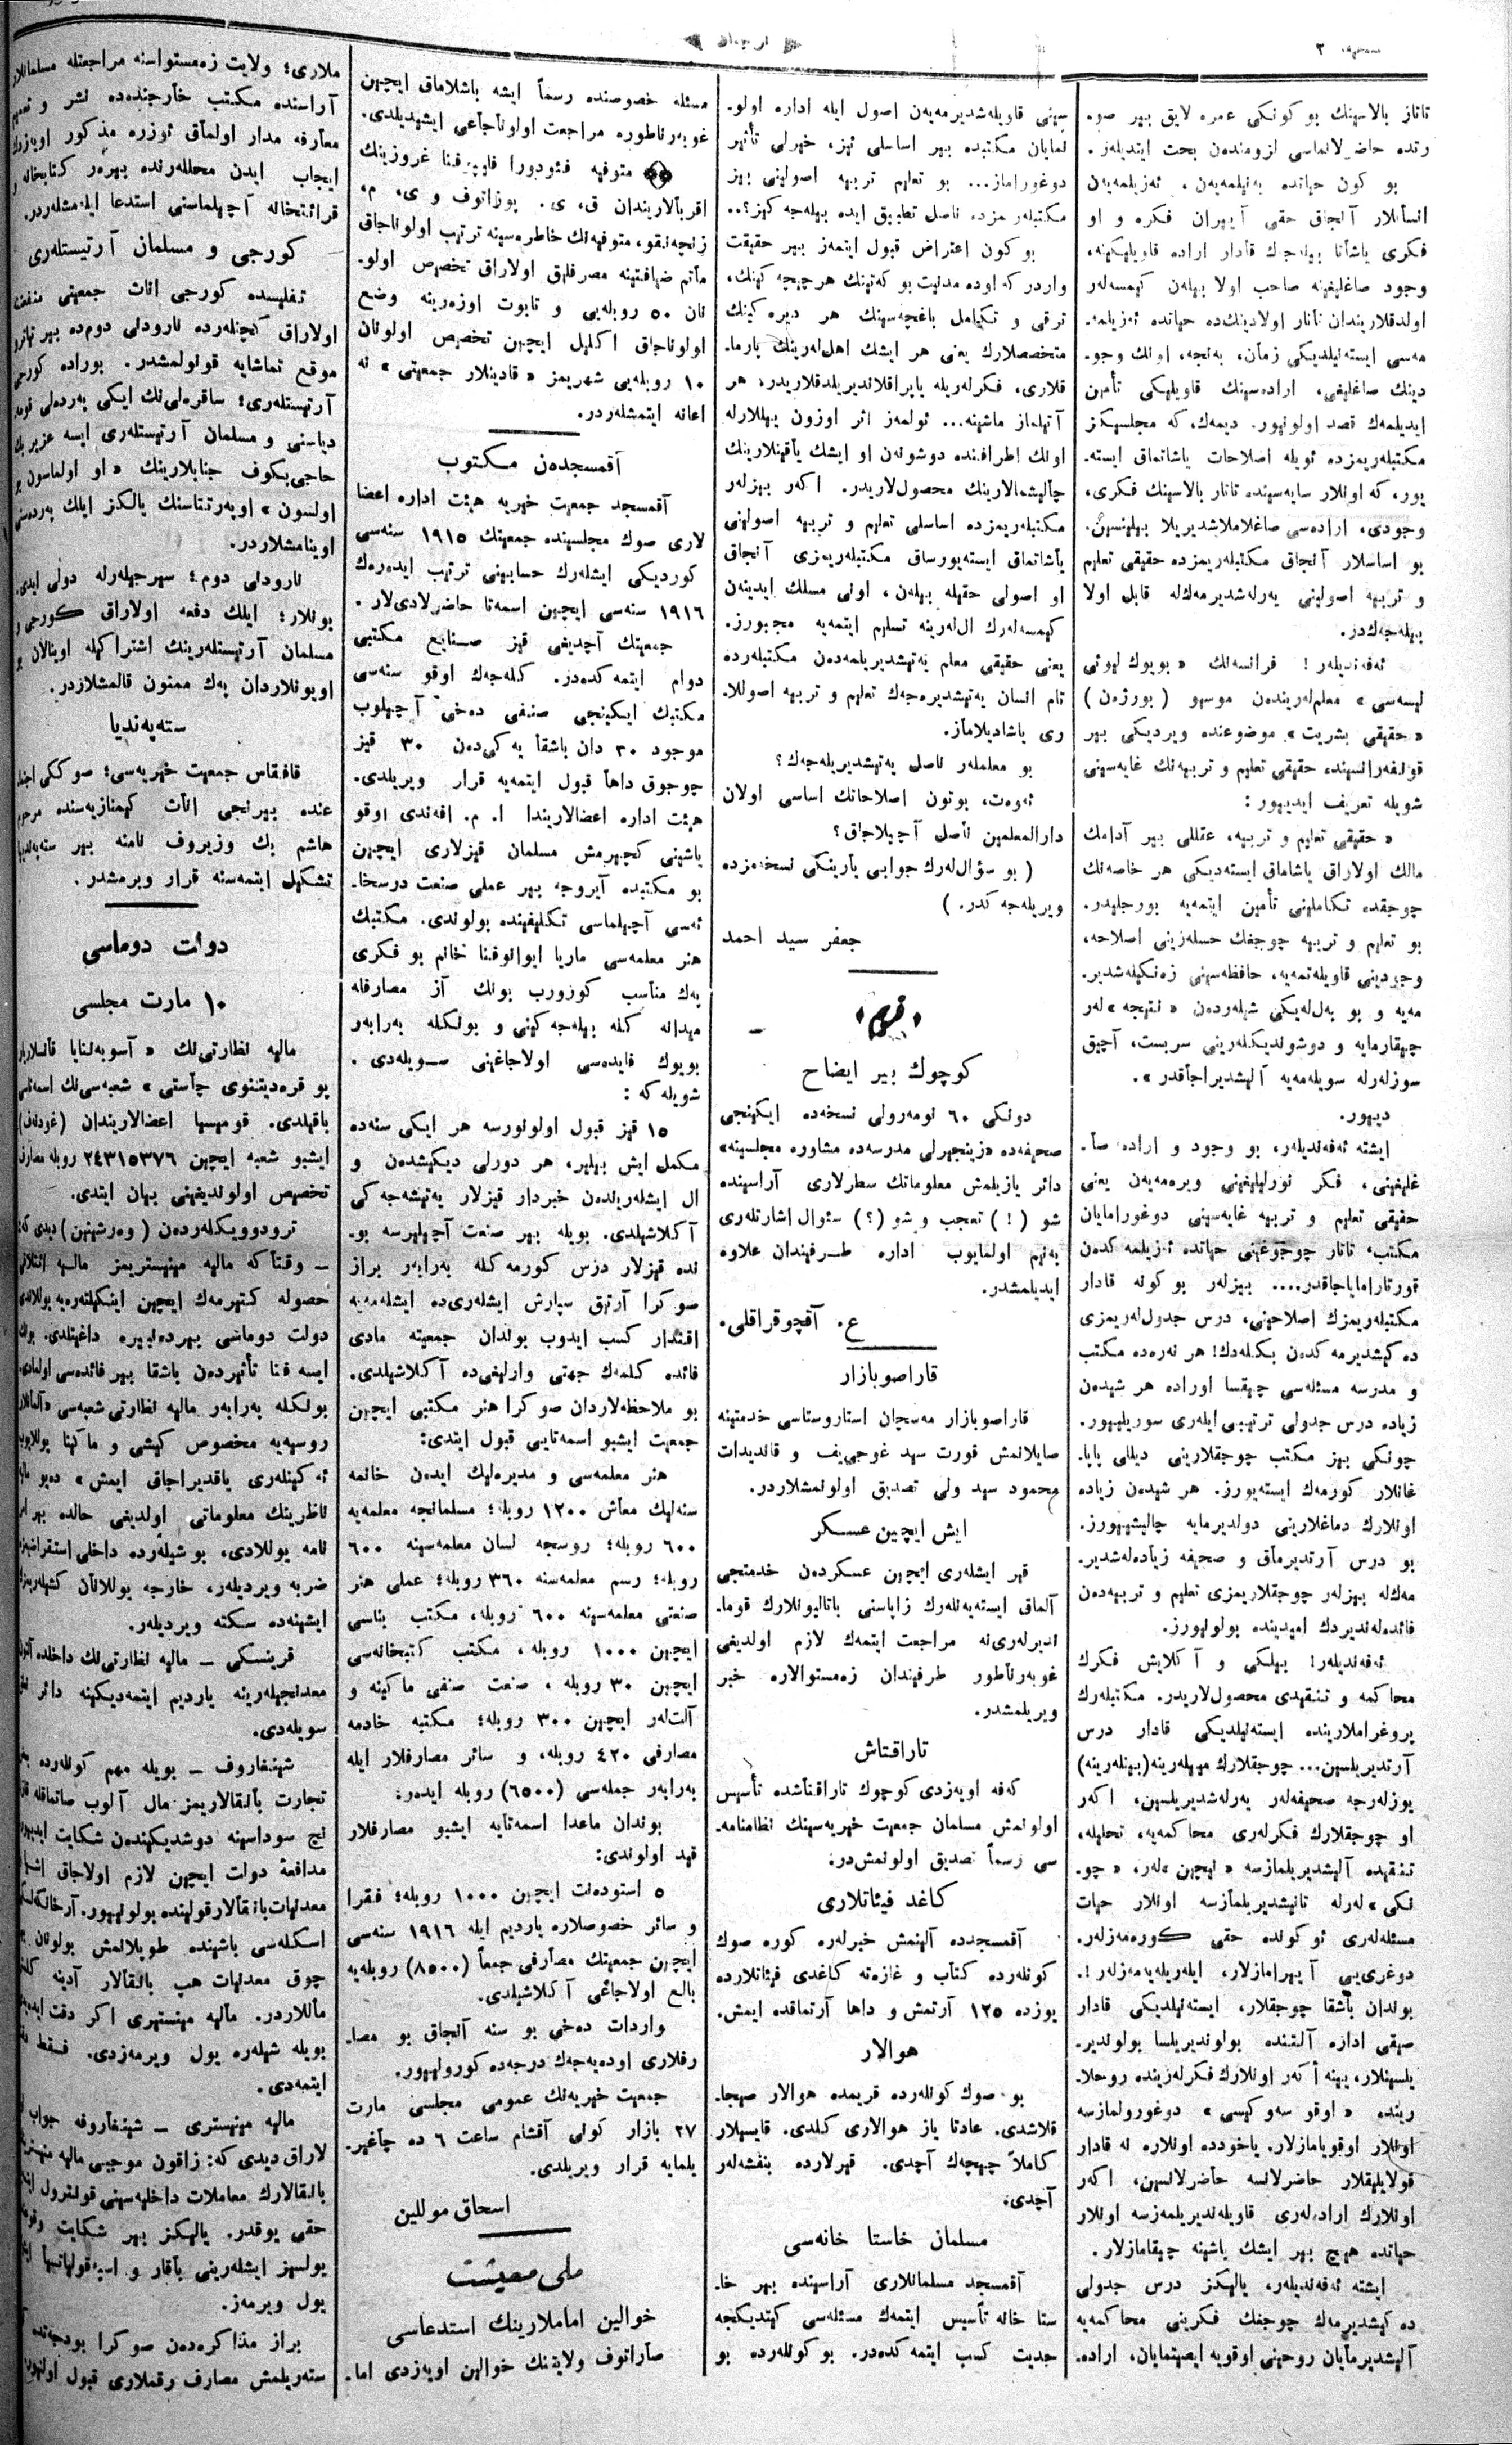 صحیفه ٢
ترجمان
تاتار بالاسینك بو كونكی عمره لایق بیر صو-
رتده حاضرلانماسی لزومندن بحث ایتدیلەر.
بو كون حیاتده یەڭیلمەیەن، ئەزیلمەیەن
انسانلار آنجاق حقی آییران فكره و او
فكری یاشاتا بیلەجك قادار اراده قاویلیكینه،
وجود صاغلیغینه صاحب اولا بیلەن كیمسەلەر
اولدقلاریندان تاتار اولادینكده حیاتده ئەزیلمە-
مەسی ایستەنیلدیكی زمان، یەنجه، اونك وجو-
دینك صاغلیغی، ارادەسینك قاویلیكی تأمین
ایدیلمەك قصد اولونیور. دیمەك، كه مجلسیكز
مكتبلەریمزده ئویله اصلاحات یاشاتماق ایستە-
یور، كه اونلار سایەسینده تاتار بالاسینك فكری،
وجودی، ارادەسی صاغلاملاشدیریلا بیلینسین.
بو اساسلار آنجاق مكتبلەریمزده حقیقی تعلیم
و تربیه اصولینی یەرلەشدیرمەكله قابل اولا
بیلەجەكدر.
ئەفەندیلەر! فرانسەنك « بویوك لیوئی
لیسەسی» معلملەریندەن موسیو (بورژەن)
« حقیقی بشریت» موضوعنده ویردیكی بیر
قونفەرانسینده حقیقی تعلیم و تربیەنك غایەسینی
شویله تعریف ایدییور:
« حقیقی تعلیم و تربیه، عقللی بیر آدامك
مالك اولاراق یاشاماق ایستەدیكی هر خاصەنك
چوجقده تكاملینی تأمین ایتمەیه بورجلیدر.
بو تعلیم و تربیه چوجغك حسلەرینی اصلاحه،
وجودینی قاویلەتمەیه، حافظەسینی زەنكیلەشدیر-
مەیه و بو بەللەیكی شیلەردەن « نتیجه» لەر
چیقارمایه و دوشوندیكلەرینی سربست، آچیق
سوزلەرله سویلەمەیه آلیشدیراجاقدر».
دیيور.
ایشته ئەفەندیلەر، بو وجود و اراده صا-
غلیغینی، فكر نورلیلیغینی ویرەمەیەن یعنی
حقیقی تعلیم و تربیه غایەسینی دوغورامایان
مكتب، تاتار چوجوغینی حیاتده ئەزیلمەكدەن
قورتارامایاجاقدر.... بیزلەر بو كونه قادار
مكتبلەریمزك اصلاحینی، درس جدوللەریمزی
دەكیشدیرمەكدەن بكلەدك! هر نەرەده مكتب
و مدرسه مسئلەسی چیقسا اوراده هر شیدەن
زیاده درس جدولی ترتیبی ایلەری سوریلیيور.
چونكی بیز مكتب چوجقلارینی دیللی پاپا-
غانلار كورمەك ایستەیورز. هر شیدەن زیاده
اونلارك دماغلارینی دولدیرمایه چالیشیيورز.
بو درس آرتدیرماق و صحیفه زیادەلەشدیر-
مەكله بیزلەر چوجقلاریمزی تعلیم و تربیەدەن
فائدەلەندیردك امیدینده بولولیورز.
ئەفەندیلەر! بیلكی و آكلایش فكرك
محاكمه و تنقیدی محصوللاریدر. مكتبلەرك
پروغراملارینده ایستەنیلدیكی قادار درس
آرتدیریلسین... چوجقلارك میيلەرینه (بینلەرینه)
یوزلەرجه صحیفەلەر یەرلەشدیریلسین، اكەر
او چوجقلارك فكرلەری محاكمەیه، تحلیله،
تنقیده آلیشدیریلمازسه « نیچین» لەر، « چو-
نكی» لەرله تانیشدیریلمازسه اونلار حیات
مسئلەلەری ئوكونده حقی كورەمەزلەر.
دوغری یی آییرامازلار، ایلەریلەیەمەزلەر!.
بوندان باشقا چوجقلار، ایستەنیلدیكی قادار
صیقی اداره آلتنده بولوندیریلسا بولوندیر-
یلسینلار، یینه اكەر اونلارك فكرلەرینده روحلا-
رینده « اوقو سەوكیسی» دوغورولمازسه
اونلار اوقویامازلار. یاخودده اونلاره نه قادار
قولایلیقلار حاضرلانسه حاضرلانسین، اكەر
اونلارك ارادەلەری قاویلەندیریلمەزسه اونلار
حیاتده هیچ بیر ایشك باشینه چیقامازلار.
ایشته ئەفەندیلەر، یالیكز درس جدولی
دەكیشدیرمەك چوجغك فكرینی محاكمەیه
آلیشدیرمایان روحینی اوقویه ایصیتمایان، ارادە-
سینی قاویلەشدیرمەیەن اصول ایله اداره اولو-
نمایان مكتبده بیر اساسلی ئیز، خیرلی تأثیر
دوغوراماز... بو تعلیم تربیه اصولینی بیز
مكتبلەرمزده ناصل تطبیق ایده بیلەجەكیز؟..
بو كون اعتراض قبول ایتمەز بیر حقیقت
واردر كه اوده مدنیت بو كەتینك هر چیچەكینك،
ترقی و تكامل باغچەسینك هر دیرەكینك
متخصصلارك یعنی هر ایشك اهللەرینك پارما-
قلاری، فكرلەریله یاپراقلاندیریلدقلاریدر، هر
آتیلماز ماشینه... ئولمەز اثر اوزون ییللارله
اونك اطرافنده دوشونەن او ایشك یاقینلارینك
چالیشمالارینك محصوللاریدر. اكەر بیزلەر
مكتبلەریمزده اساسلی تعلیم و تربیه اصولینی
یاشاتماق ایستەیورساق مكتبلەریمزی آنجاق
او اصولی حقیله بیلەن، اونی مسلك ایدینەن
كیمسەلەرك اللەرینه تسلیم ایتمەیه مجبورز.
یعنی حقیقی معلم یەتیشدیریلمەدەن مكتبلەرده
تام انسان یەتیشدیرەجەك تعلیم و تربیه اصوللا-
ری یاشادیلاماز.
بو معلملەر ناصل یەتیشدیریلەجەك؟
ئەوەت، بوتون اصلاحاتك اساسی اولان
دارالمعلمین ناصل آچیلاجاق؟
(بو سؤاللەرك جوابی یارینكی نسخەمزده
ویریلەجەكدر.)
جعفر سید احمد
قریم
كوچوك بیر ایضاح
دونكی ٦٠ نومەرولی نسخەده ایكینجی
صحیفەده «زینجیرلی مدرسەده مشاوره مجلسینه»
دائر یازیلمش معلوماتك سطرلاری آراسینده
شو (!) تعجب و شو (؟) سئوال اشارتلەری
بەنیم اولمایوب اداره طرفیندان علاوه
ایدیلمشدر.
ع. آقچوقراقلی.
قاراصوبازار
قاراصوبازار مەسچان استاروستاسی خدمتینه
صایلانمش قورت سید غوجی یف و قاندیدات
محمود سید ولی تصدیق اولونمشلاردر.
ایش ایچین عسكر
قیر ایشلەری ایچین عسكردەن خدمتجی
آلماق ایستەیەنلەرك زاپاسنی باتالیونلارك قوما-
ندیرلەرینه مراجعت ایتمەك لازم اولدیغی
غوبەرناطور طرفیندان زەمستوالاره خبر
ویریلمشدر.
تاراقتاش
كەفه اویەزدی كوچوك تاراقتاشده تأسیس
اولونمش مسلمان جمعیت خیریەسینك نظامنامە-
سی رسماً تصدیق اولونمشدر.
كاغد فیئاتلاری
آقمسجدده آلینمش خبرلەره كوره صوك
كونلەرده كتاب و غازەته كاغدی فیئاتلارده
یوزده ١٢٥ آرتمش و داها آرتماقده ایمش.
هوالار
بو صوك كونلەرده قریمده هوالار صیجا-
قلاشدی. عادتا یاز هوالاری كلدی. قایسیلار
كاملاً چیچەك آچدی. قیرلارده بنفشەلەر
آچدی.
مسلمان خاستا خانەسی
آقمسجد مسلمانلاری آراسینده بیر خا-
ستا خانه تأسیس ایتمەك مسئلەسی كیتدیكجه
جدیت كسب ایتمەكدەدر. بو كونلەرده بو
مسئله خصوصنده رسماً ایشه باشلاماق ایچین
غوبەرناطوره مراجعت اولوناجاغی ایشیدیلدی.
متوفیه فئودورا فلیپوفنا غروزینك
اقربالاریندان ق. ی. بوزانوف و ی. م.
زینچەنقو، متوفیەنك خاطرەسینه ترتیب اولوناجاق
مأتم ضیافتینه مصرفلیق اولاراق تخصیص اولو-
نان ٥٠ روبلەیی و تابوت اوزەرینه وضع
اولوناجاق اكلیل ایچین تخصیص اولونان
١٠ روبلەیی شهریمز « قادینلار جمعیتی» نه
اعانه ایتمشلەردر.
آقمسجدەن مكتوب
آقمسجد جمعیت خیریه هیئت اداره اعضا
لاری صوك مجلسینده جمعیتك ١٩١٥ سنەسی
كوردیكی ایشلەرك حسابینی ترتیب ایدەرەك
١٩١٦ سنەسی ایچین اسمەتا حاضرلادیلار.
جمعیتك آچدیغی قیز صنایع مكتبی
دوام ایتمەكدەدر. كلەجەك اوقو سنەسی
مكتبك ایكینجی صنفی دەخی آچیلوب
موجود ٣٠ دان باشقا یەكیدەن ٣٠ قیز
چوجوق داها قبول ایتمەیه قرار ویریلدی.
هیئت اداره اعضالاریندا ا. م. افەندی اوقو
یاشینی كچیرمش مسلمان قیزلاری ایچین
بو مكتبده آیروجه بیر عملی صنعت درسخا-
نەسی آچیلماسی تكلیفینده بولوندی. مكتبك
هنر معلمەسی ماریا ایوانوفنا خانم بو فكری
پەك مناسب كوروب بونك آز مصارفله
میدانه كله بیلەجەكینی و بونكله بەرابەر
بویوك فایدەسی اولاجاغینی سویلەدی.
شویله كه:
١٥ قیز قبول اولونورسه هر ایكی سنەده
مكمل ایش بیلیر، هر دورلی دیكیشدەن و
ال ایشلەریندەن خبردار قیزلار یەتیشەجەكی
آكلاشیلدی. بویله بیر صنعت آچیلیرسه بو-
نده قیزلار درس كورمەكله بەرابەر براز
صوكرا آرتیق سپارش ایشلەریده ایشلەمەیه
اقتدار كسب ایدوب بوندان جمعیته مادی
فائده كلمەك جهتی وارلیغیده آكلاشیلدی.
بو ملاحظەلاردان صوكرا هنر مكتبی ایچین
جمعیت ایشبو اسمەتایی قبول ایتدی:
هنر معلمەسی و مدیرەلیك ایدەن خانمه
سنەلیك معاش ١٢٠٠ روبله؛ مسلمانجه معلمەیه
٦٠٠ روبله؛ روسجه لسان معلمەسینه ٦٠٠
روبله؛ رسم معلمەسنه ٣٦٠ روبله؛ عملی هنر
صنعتی معلمەسینه ٦٠٠ روبله، مكتب بناسی
ایچین ١٠٠٠ روبله، مكتب كتبخانەسی
ایچین ٣٠ روبله، صنعت صنفی ماكینه و
آلتلەر ایچین ٣٠٠ روبله؛ مكتبه خادمه
مصارفی ٤٢٠ روبله، و سائر مصارفلار ایله
بەرابەر جملەسی (٦٥٠٠) روبله ایدەر:
بوندان ماعدا اسمەتایه ایشبو مصارفلار
قید اولوندی:
٥ استودەنت ایچین ١٠٠٠ روبله؛ فقرا
و سائر خصوصلاره یاردیم ایله ١٩١٦ سنەسی
ایچین جمعیتك مصارفی جمعاً (٨٥٠٠) روبلەیه
بالغ اولاجاغی آكلاشیلدی.
واردات دەخی بو سنه آنجاق بو مصا-
رفلاری اودەیەجەك درجەده كورولیيور.
جمعیت خیریەنك عمومی مجلسی مارت
٢٧ بازار كونی آقشام ساعت ٦ ده چاغیر-
یلمایه قرار ویریلدی.
اسحاق موللین
ملی معیشت
خوالین اماملارینك استدعاسی
صاراتوف ولایتنك خوالین اویەزدی اما-
ملاری؛ ولایت زەمستواسنه مراجعتله مسلمانلار
آراسنده مكتب خارجندەده نشر و تعمیم
معارفه مدار اولماق ئوزره مذكور اویەزدك
ایجاب ایدن محللەرنده بیرەر كتابخانه و
قرائتخانه آچیلماسنی استدعا ایلەمشلەردر.
كورجی و مسلمان آرتیستلەری
تفلیسده كورجی اناث جمعیتی منفعتنه
اولاراق كچنلەرده نارودنی دومده بیر تیاترو
موقع تماشایه قونولمشدر. بوراده كورجی
آرتیستلەری؛ ساقرەلینك ایكی پەردەلی قومە-
دیاسنی و مسلمان آرتیستلەری ایسه عزیر بك
حاجی بكوف جنابلارینك « او اولماسون بو
اولسون» اوپەرەتتاسنك یالكز ایلك پەردەسنی
اوینامشلاردر.
نارودنی دوم؛ سیرجیلەرله دولی ایدی.
بونلار؛ ایلك دفعه اولاراق كورجی و
مسلمان آرتیستلەرینك اشتراكیله اوینالان بو
اویونلاردان پەك ممنون قالمشلاردر.
ستەپەندیا
قافقاس جمعیت خیریەسی؛ صوككی اجتما-
عنده بیرنجی اناث كیمنازیەسنده مرحوم
هاشم بك وزیروف نامنه بیر ستەپەندیا
تشكیل ایتمەسنه قرار ویرمشدر.
دولت دوماسی
١٠ مارت مجلسی
مالیه نظارتینك « آسوبەننایا قانسلاریا
پو قرەدیتنوی چاستی» شعبەسینك اسمەتاسی
باقیلدی. قومیسیا اعضالاریندان (غودنەف)
ایشبو شعبه ایچین ٢٤٣١٥٣٧٦ روبله مصارف
تخصیص اولوندیغینی بیان ایتدی.
ترودوویكلەردەن (وەرشینین) دیدی كه:
ـ وقتاكه مالیه مینیستریمز مالیه ائتلافی
حصوله كتیرمەك ایچین اینكیلتەرەیه یوللاندی
دولت دوماسی بیردەنبیره داغیتلدی. بونك
ایسه فنا تأثیردەن باشقا بیر فائدەسی اولمادی.
بونكله بەرابەر مالیه نظارتی شعبەسی «آلمانلار
روسیەیه مخصوص كیشی و ماكینا یوللایوب
ئەكینلەری یاقدیراجاق ایمش» دەیو مالیه
ناظرینك معلوماتی اولدیغی حالده بیر امر
نامه یوللادی، بو شیلەرده داخلی استقراضیمزه
ضربه ویردیلەر، خارجه یوللانان كشیلەریمزك
ایشینەده سكته ویردیلەر.
قرینسكی ـ مالیه نظارتینك داخلده آلتون
معدنجیلەرینه یاردیم ایتمەدیكینه دائر نطق
سویلەدی.
شینغاروف ـ بویله مهم كونلەرده بعض
تجارت بانقالاریمز مال آلوب صاتماقله
نچ سوداسینه دوشدیكیندەن شكایت ایدییور.
مدافعۀ دولت ایچین لازم اولاجاق اشیا،
معدنیات بانقالار قولینده بولولیيور. آرخانكەلسك
اسكلەسی باشینده طوپلانمش بولونان بیر
چوق معدنیات هپ بانقالار آدینه كلمش
ماللاردر. مالیه مینیستری اكر دقت ایدەیدی
بویله شیلەره یول ویرمەزدی. فقط دقت
ایتمەدی.
مالیه مینیستری ـ شینغاروفه جواب او-
لاراق دیدی كه: زاقون موجبی مالیه مینیسترینك
بانقالارك معاملات داخلیەسینی قونترول ایتمەیه
حقی یوقدر. یالیكز بیر شكایت وقوعنده
یولسیز ایشلەرینی باقار و اسپەقولیاتسیا ایشینه
یول ویرمەز.
براز مذاكرەدەن صوكرا بودجەتده
ستەریلمش مصارف رقملاری قبول اولنیور.